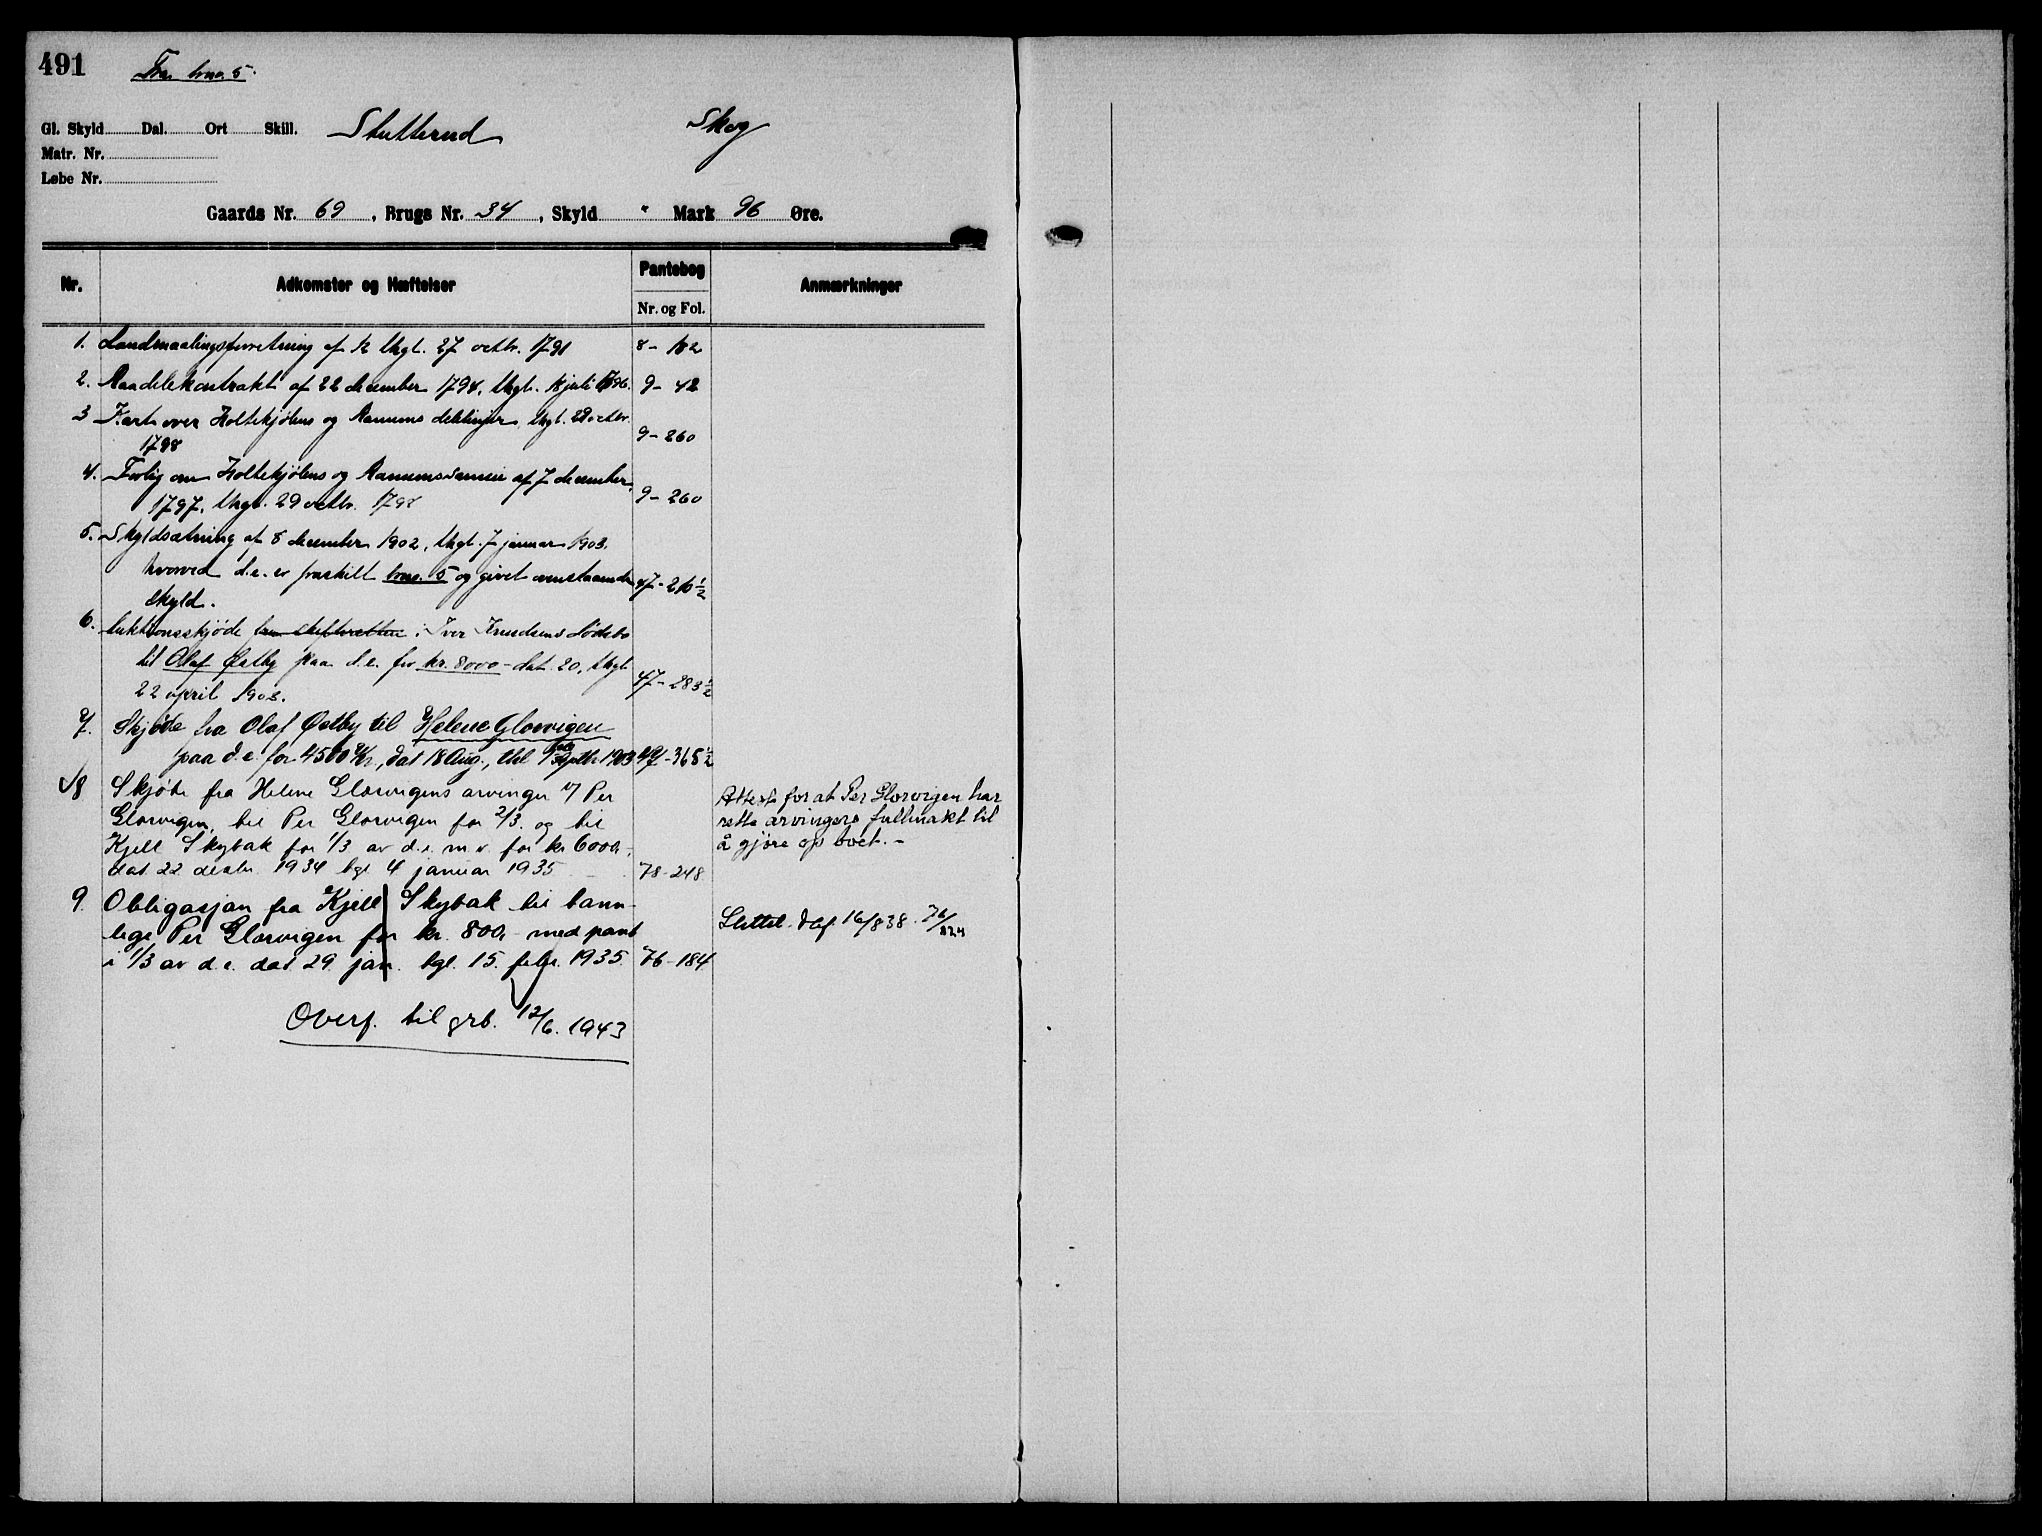 491
Fra brno 5.
Gl. Skyld Dal. Ort Skill. Stutterud Skog
Matr. Nr.
Løbe Nr.
Gaards Nr. 69, Brugs Nr. 34, Skyld " Mark 96 Øre.
Nr. Adkomster og Hæftelser Pantebog Anmærkninger
Nr. og Fol.
1. Landmaalingsforretning af 12 thgl. 27 octbr. 1791 8 - 182
2. Raadelekontrakt af 22 december 1794, thgl. juli 1796. 9 - 42
3 Kart over Holtekjølens og Ranums thgl. 29 octbr. 9 - 260
1798
4. Forlig om Holtekjølens og Ranums af 7 december
1797, thgl. 29 octbr. 1798 9 - 260
5. Skyldsætning af 8 december 1902, thgl. 7 januar 1903,
hvorved d.e. er fraskilt brno. 5 og givet ovenstaaende 47 - 216 ½
skyld.
6. Auktionsskjøde fra skifteretten i Iver Knudsens dødsbo
til Olaf Østby paa d.e. for kr. 8000 - dat. 20, thgl
22 april 1903. 47 - 283 ½
7. Skjøte fra Olaf Østby til Helene Glorvigen
paa d.e. for 4500 Kr., dat 18 Aug., thl 1 Septbr 1903 47 - 368 ½
8 Skjøte fra Helene Glorvigens arvinger v/ Per
Glorvigen, til Per Glorvigen for 2/3. og til
Kjell Skybak for 1/3 av d.e. m.v. for kr 6000,-
dat 22 desbr. 1934 tgl 4 januar 1935 78 - 248
Attest for at Per Glorvigen har
rette arvingers fullmakt til
å gjøre op boet. -
9. Obligasjon fra Kjell Skybak til tann-
lege Per Glorvigen for kr. 800,- med pant
i 1/3 av d.e. dat 29. jan. tgl. 15. febr. 1935. 76 - 184
Slettet. Daf. 16/8 38. 76/824
Overf. til grb. 12/6. 1943